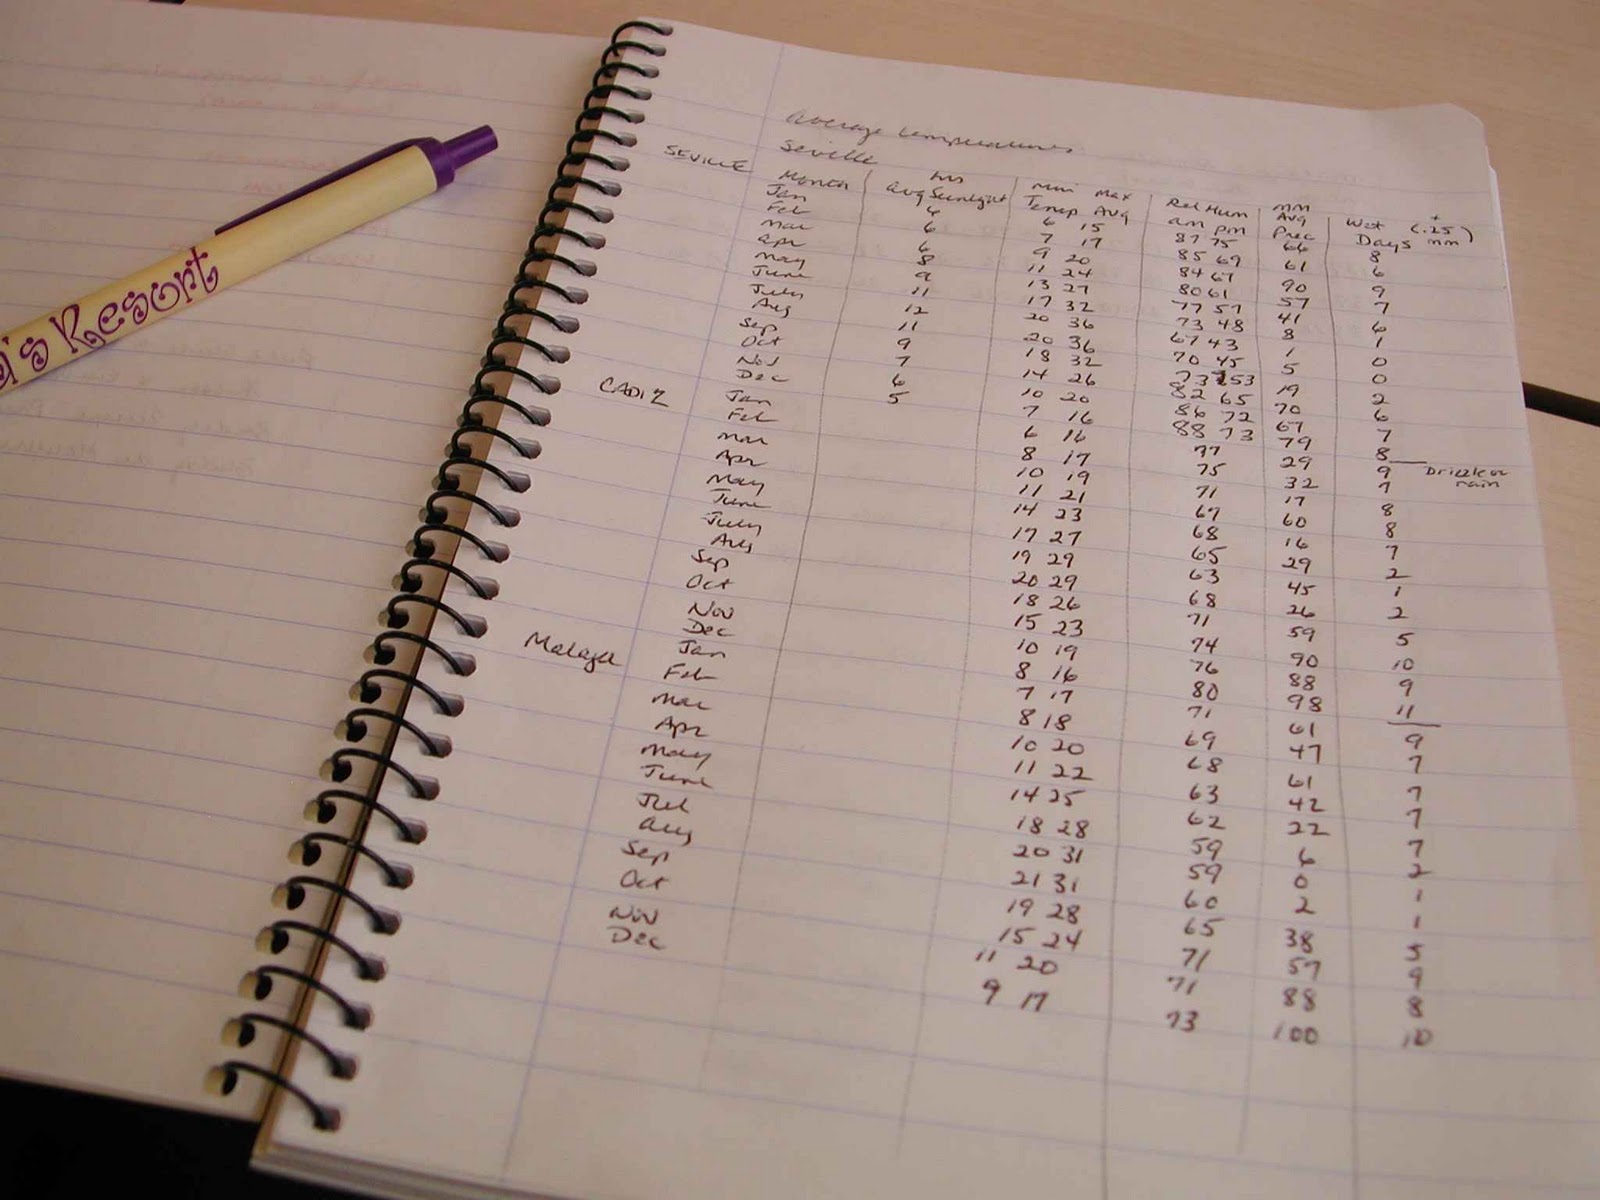 's Resort
Average temperatures
Seville
SEVILLE
Month hrs Avg Sunlight Min Temp Max Avg Rel Hum am pm mm Avg Prec Wet Days + (.25 mm)
Jan 6 6 15 87 75 66 8
Feb 6 7 17 85 69 61 6
Mar 6 9 20 84 67 90 9
Apr 8 11 24 80 61 57 7
May 9 13 27 77 57 41 6
June 11 17 32 73 48 8 1
July 12 20 36 67 43 1 0
Aug 11 20 36 70 45 5 0
Sep 9 18 32 73 53 19 2
Oct 7 14 26 82 65 70 6
Nov 6 10 20 86 72 67 7
Dec 5 7 16 88 73 79 8
CADIZ Jan 6 16 77 29 9 Drizzle or rain
Feb 8 17 75 32 7
Mar 10 19 71 17 8
Apr 11 21 67 60 8
May 14 23 68 16 7
June 17 27 65 29 2
July 19 29 63 45 1
Aug 20 29 68 26 2
Sep 18 26 71 59 5
Oct 15 23 74 90 10
Nov 10 19 76 88 9
Dec 8 16 80 98 11
Malaga Jan 7 17 71 61 9
Feb 8 18 69 47 7
Mar 10 20 68 61 7
Apr 11 22 63 42 7
May 14 25 62 22 7
June 18 28 59 6 2
Jul 20 31 59 0 1
Aug 21 31 60 2 1
Sep 19 28 65 38 5
Oct 15 24 71 57 9
Nov 11 20 71 88 8
Dec 9 17 73 100 10